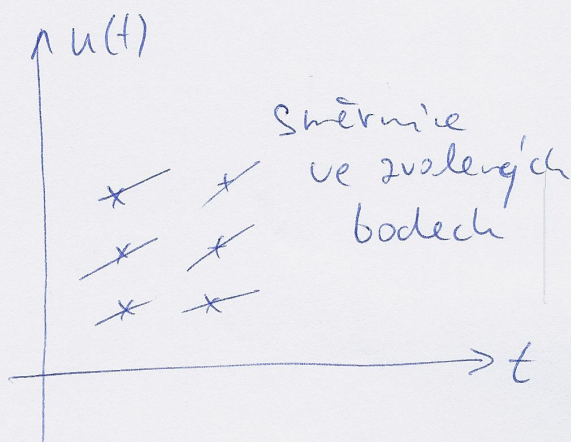 u(t)
Směrnice
ve zvolených
bodech
t